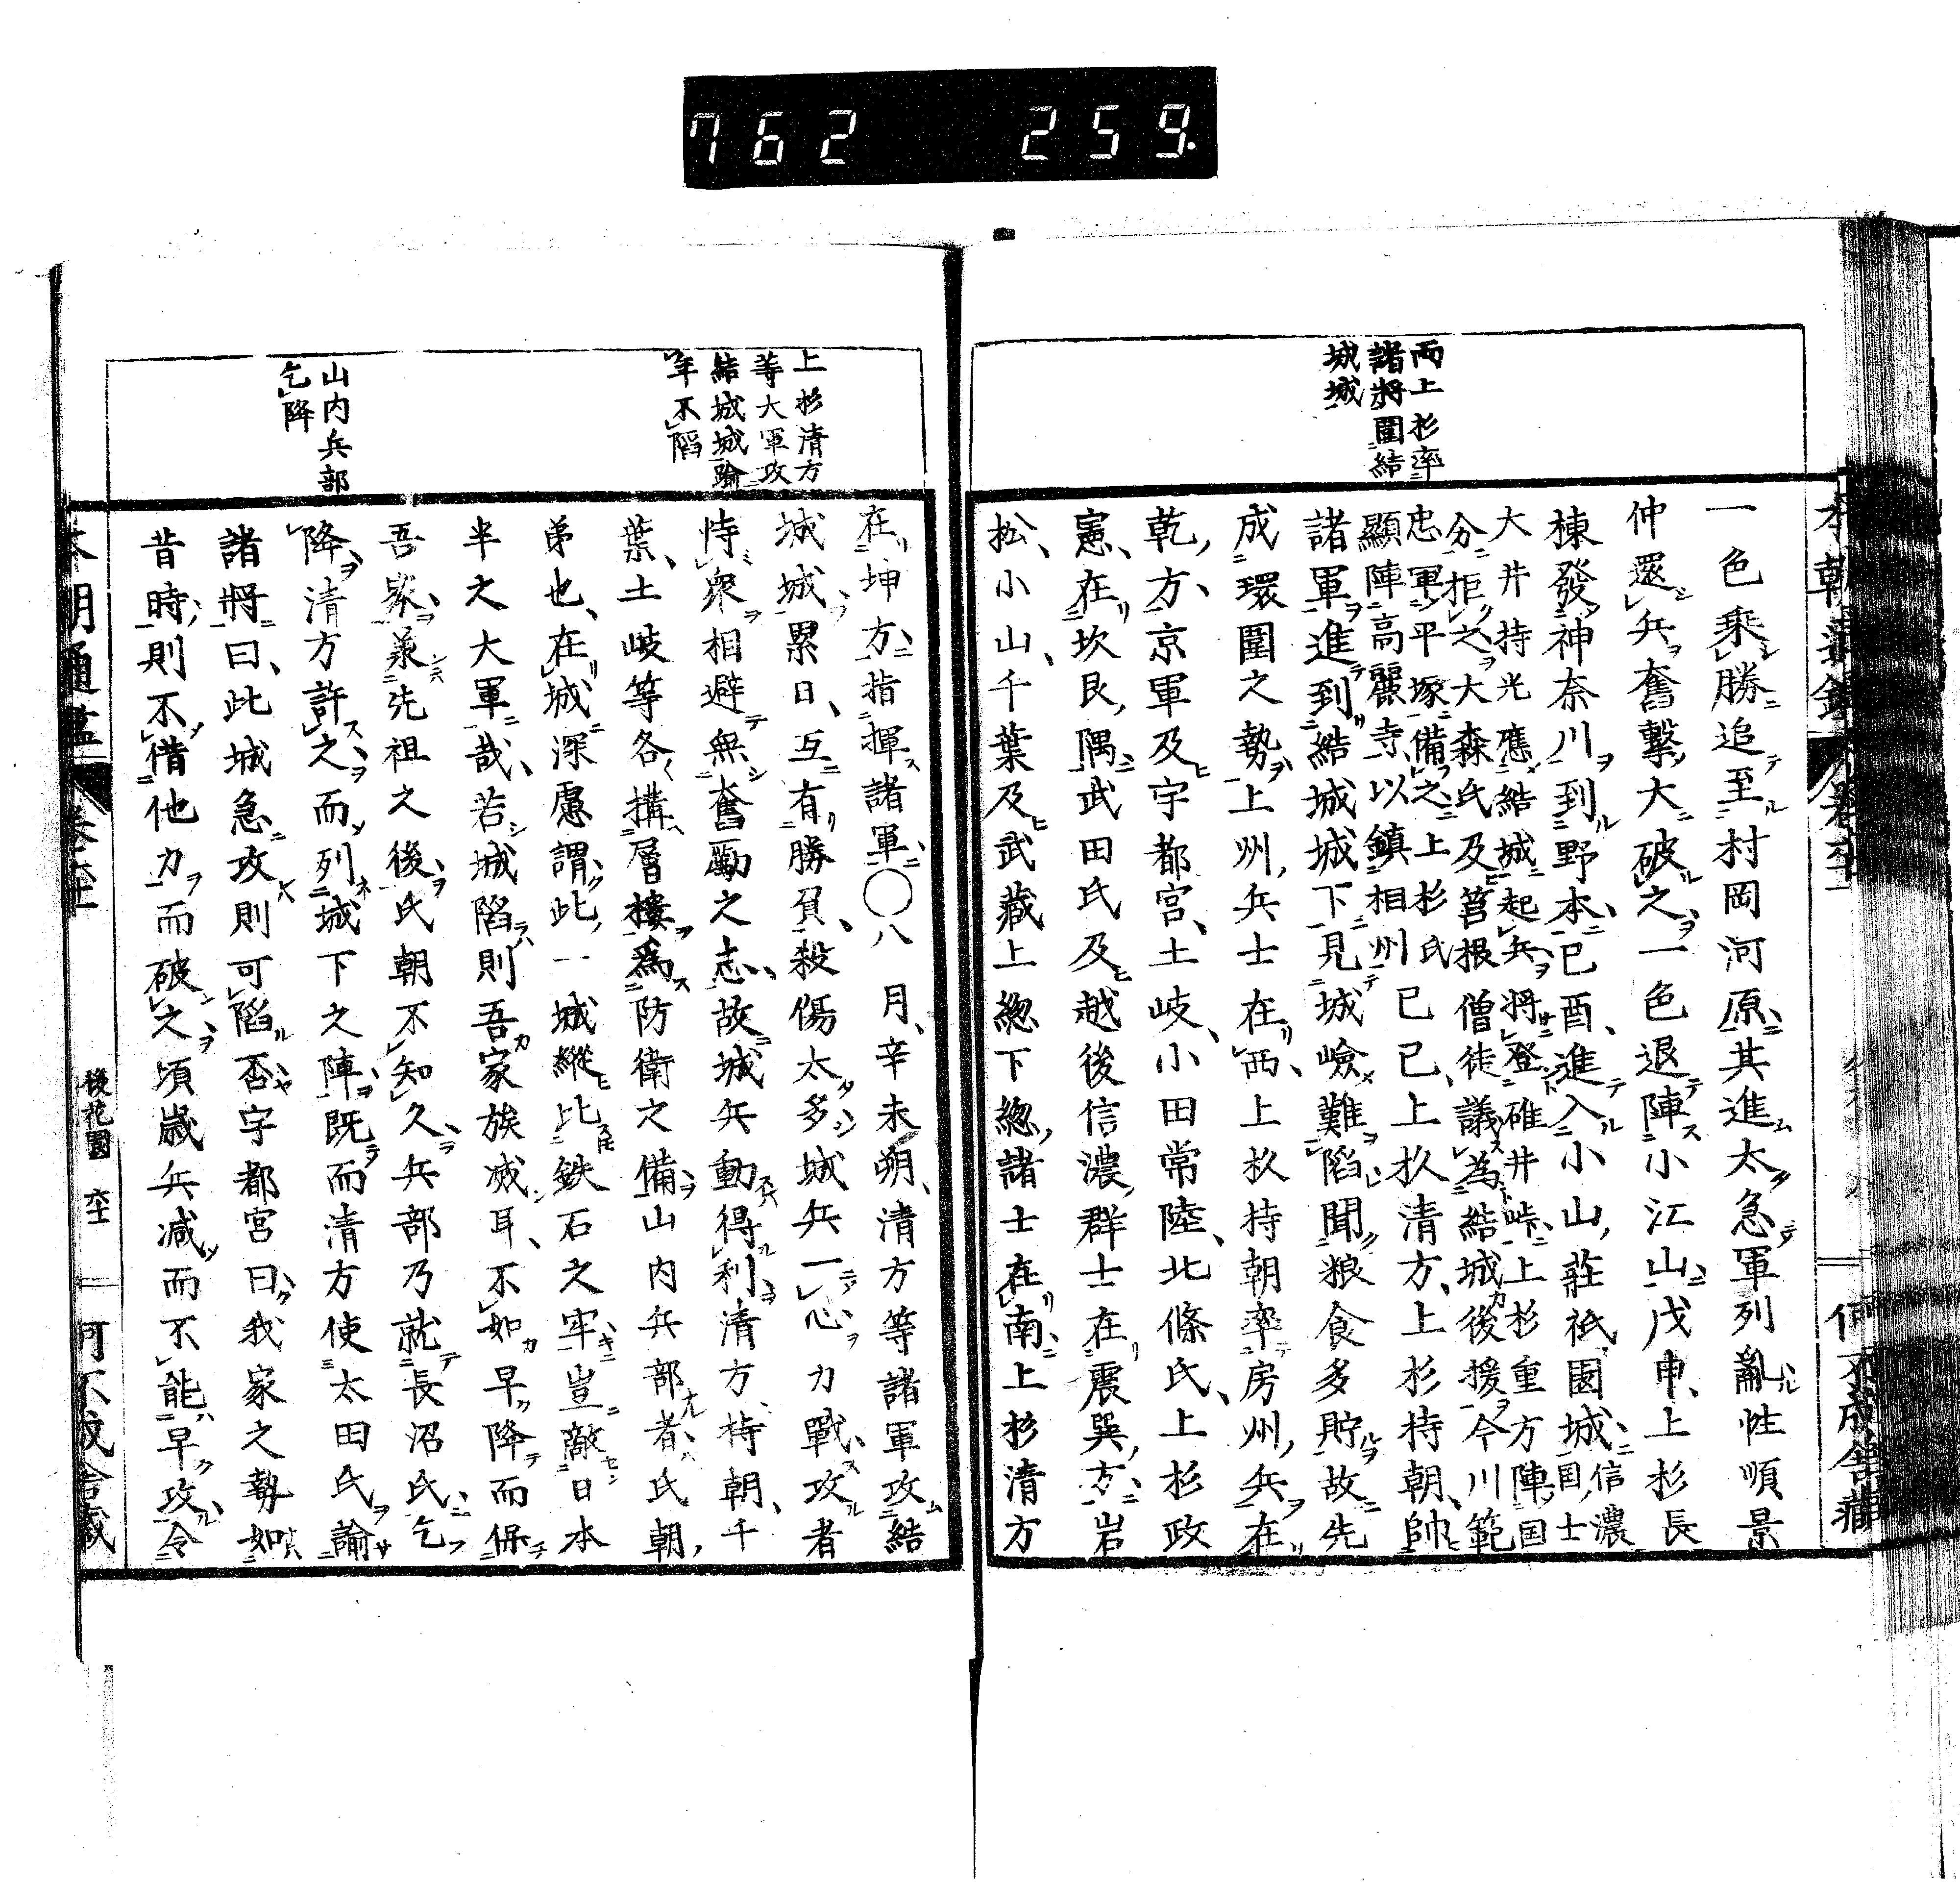 762 259.
兩上杉率
諸將圍結
城城
一色乘勝追至村岡河原其進太急軍列亂性順景
仲還兵奮擊大破之一色退陣小江山戊申上杉長
棟發神奈川到野本己酉進入小山莊祇園城信濃国士
大井持光應結城起兵將登碓井峠上杉重方陣国
分拒之大森氏及筥根僧徒議為結城後援今川範
忠軍平塚備之上杉氏
顯陣高麗寺以鎮相州己巳上杦清方上杉持朝帥
諸軍進到結城城下見城嶮難陷聞粮食多貯故先
成環圍之勢上州兵士在西上杦持朝率房州兵在
乾方京軍及宇都宮土岐小田常陸北條氏上杉政
憲在坎艮隅武田氏及越後信濃群士在震巽方岩
松小山千葉及武藏上總下總諸士在南上杉清方
上杉清方
等大軍攻
結城城踰
年不陷
山内兵部
乞降
在坤方指揮諸軍○八月辛未朔清方等諸軍攻結
城城累日互有勝負殺傷太多城兵一心力戰攻者
恃衆相避無奮勵之志故城兵動得利清方持朝千
葉土岐等各搆層樓為防衛之備山内兵部者氏朝
弟也在城深慮謂此一城縱比鉄石之牢豈敵日本
半之大軍哉若城陷則吾家族滅耳不如早降而保
吾家兼先祖之後氏朝不知久兵部乃就長沼氏乞
降清方許之而列城下之陣既而清方使太田氏諭
諸將曰此城急攻則可陷否宇都宮曰我家之勢如
昔時則不借他力而破之頃歲兵減而不能早攻令
本朝通鑑 後花園 何不成舎藏